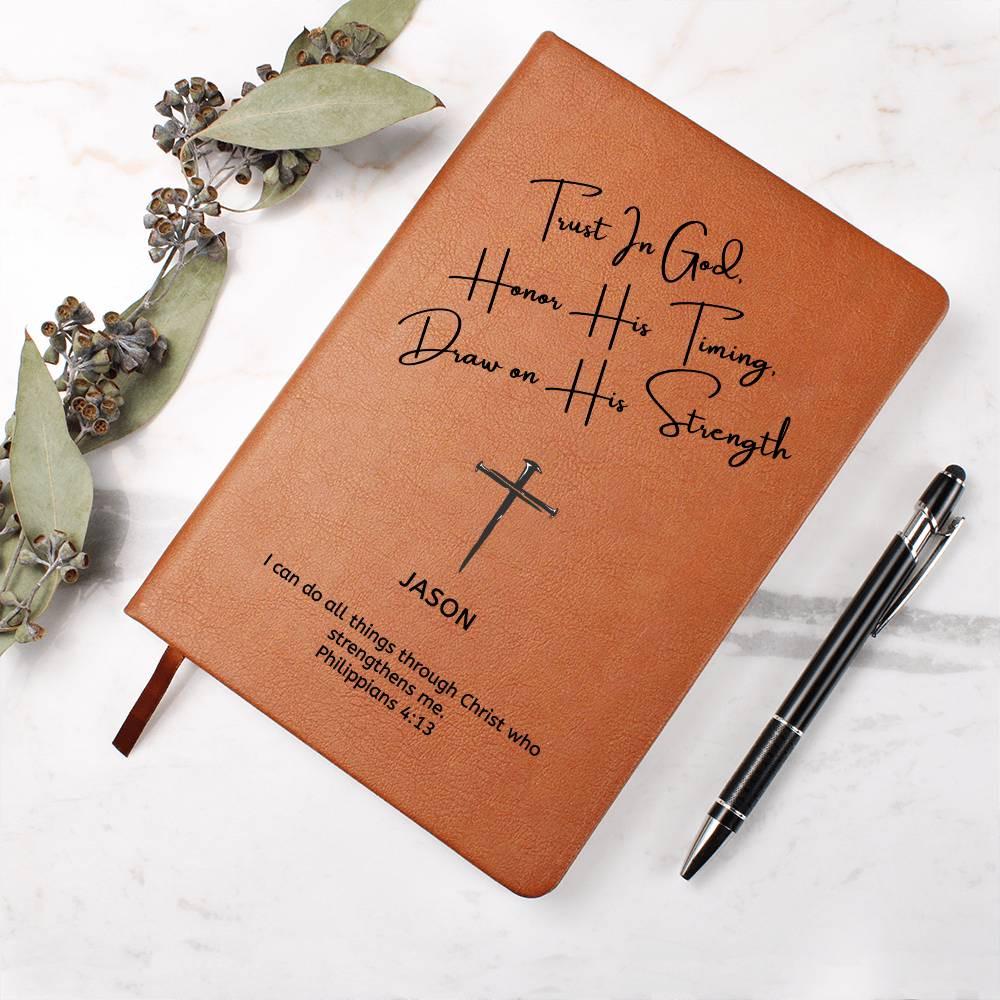 Trust In God,
Honor His Timing,
Draw on His Strength
JASON
I can do all things through Christ who
strengthens me.
Philippians 4:13